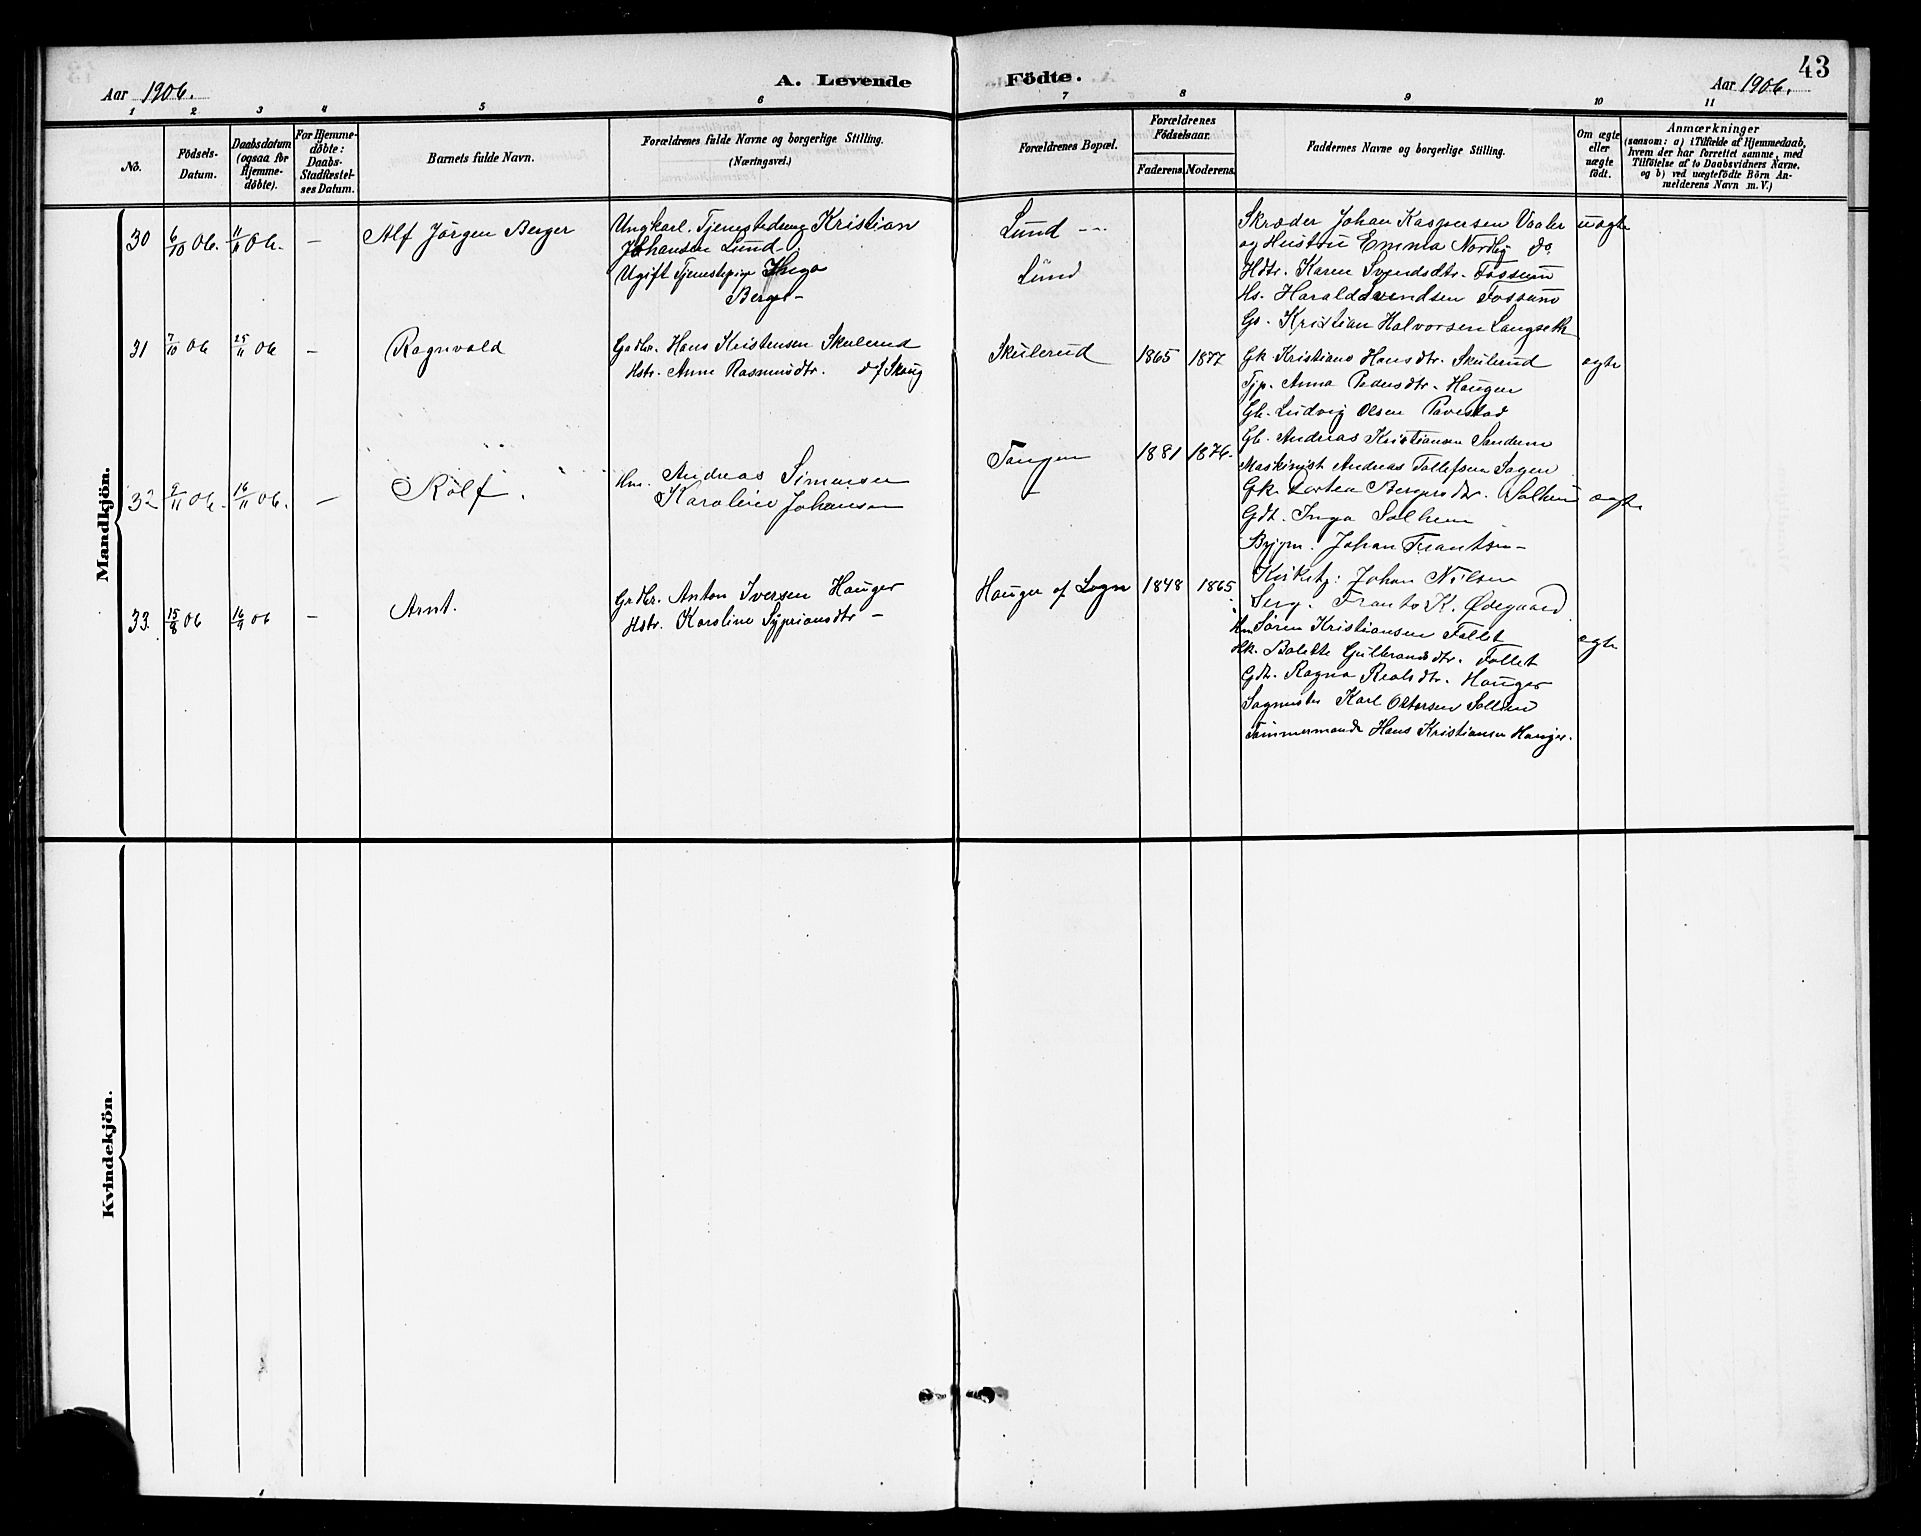 43
Aar 1906.
A. Levende
Födte.
Aar 1906.
1 2 3 4 5 6 7 8 9 10 11
No.
Födsels-
Datum.
Daabsdatum
(ogsaa for
Hjemme-
döbte).
For Hjemme-
döbte:
Daabs-
Stadfæstel-
ses Datum.
Barnets fulde Navn.
Forældrenes fulde Navne og borgerlige Stilling.
(Næringsvei.)
Forældrenes Bopæl.
Forældrenes
Födselsaar.
Faderens
Moderens.
Faddernes Navne og borgerlige Stilling.
Om ægte
eller
uægte
födt.
Anmærkninger
(saasom: a) i Tilfælde af Hjemmedaab,
hvem der har forrettet samme, med
Tilföielse af to Daabsvidners Navne.
og b) ved uægtefödte Börn An-
melderens Navn m. V.)
Mandkjön.
30 6/10 06. 11/11 06. – Alf Jörgen Berger
Ungkarl. Tjenestedreng Kristian
Johansen Lund –
Ugift Tjenestepige Inga
Berger –
Lund
Lund
Skræder Johan Kaspersen Vaaler
og Hustru Emma Nordby do
Hdtr. Karen Svendsdtr. Fossum
Hs. Harald Svendsen Fossum
Gs. Kristian Halvorsen Langseth
uægte
31 7/10 06 25/11 06 – Ragnvald
Grdbr. Hans Kristensen Skulerud
Hstr. Anne Rasmusdtr. af Skaug
Skulerud 1865 1877
Gk. Kristiane Hansdtr. Skulerud
Tjp. Anna Pedersdtr. Haugen
Gb. Ludvig Olsen
Gb. Andreas Kristiansen Sandem
ægte
32 9/11 06. 16/11 06. – Rolf.
Hm. Andreas Simensen
Karoline Johansen
Tangen 1881 1876.
Maskinist Andreas Tollefsen Sagen
Gk. Dortea Bergersdtr. Solhem
Gdt. Inga Solhem
Bygm. Johan Frantsen –
Kirketj: Johan Nilsen
Serg. Frants K. Ødegaard
ægte
33. 15/8 06 16/9 06 – Arnt.
Grdbr. Anton Iversen Hauger
Hstr. Karoline Sypriansdtr –
Hauger af Sogn 1848 1865
Hm. Søren Kristiansen Follet
Hk. Bolette Gulbrandsdtr. Follet
Gdt. Ragna Hauger
Sagmester Karl Ottersen
Tømmermand Hans Kristiansen Hauger.
ægte
Kvindekjön.